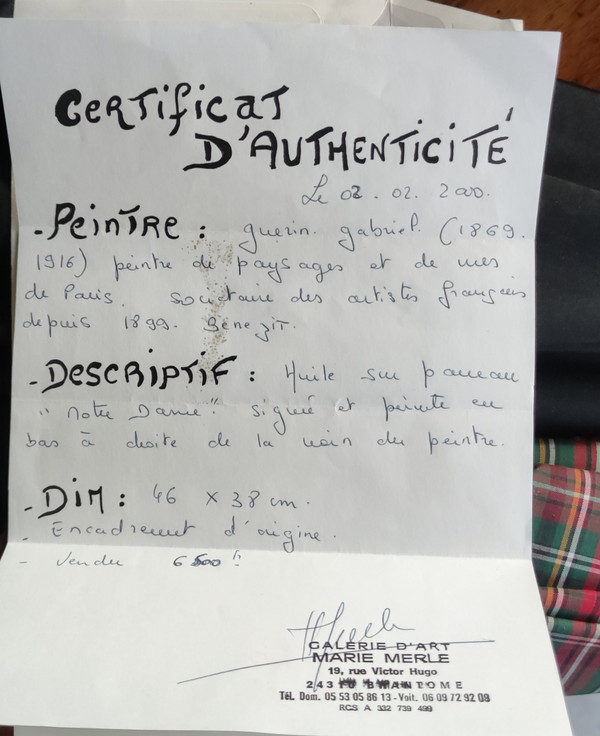 CERTIFICAT
D'AUTHENTICITÉ
Le 02. 02. 200.
- PEINTRE : guerin. gabriel. (1869.
1916) peintre de paysages et de vues
de Paris. societaire des artistes français
depuis 1899. Benezit.
- DESCRIPTIF : Huile sur panneau
"Notre Dame" signé et peinte en
bas à droite de la main du peintre.
- DIM : 46 x 38 cm.
- Encadrement d'origine.
- Vendu 6 500 F
GALERIE D'ART
MARIE MERLE
19, rue Victor Hugo
243 BRANTOME
Tél. Dom. 05 53 05 86 13 - Voit. 06 09 72 92 09
RCS A 332 739 499